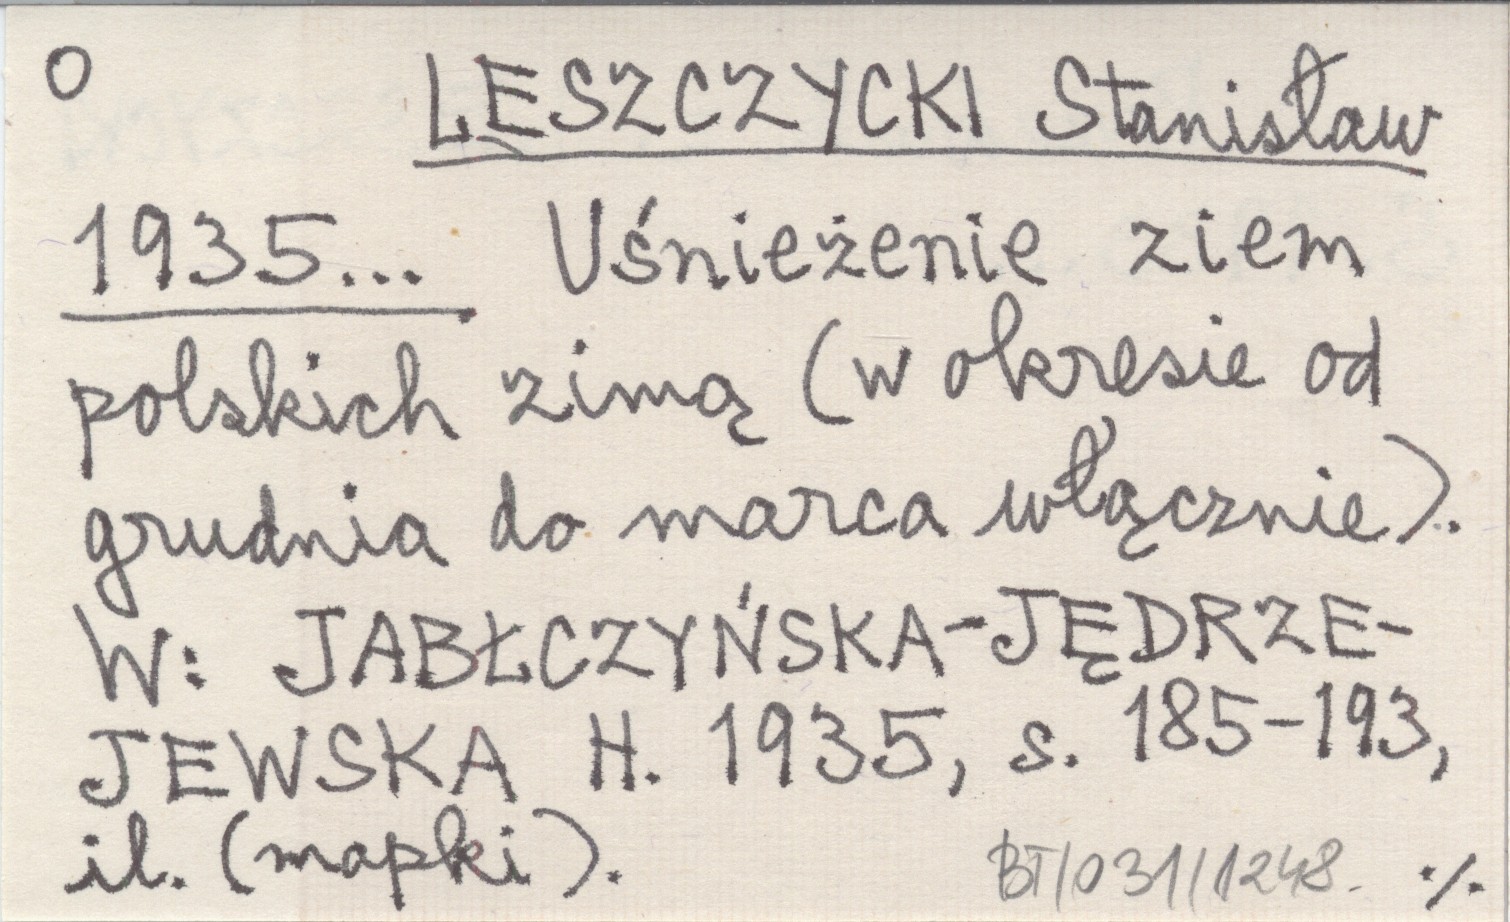 O LESZCZYCKI Stanisław
1935... Uśnieżenie ziem
polskich zimą (w okresie od
grudnia do marca włącznie).
W: JABŁCZYŃSKA-JĘDRZE-
JEWSKA H. 1935, s. 185-193,
il. (mapki).
BT/031/1248. ·/·